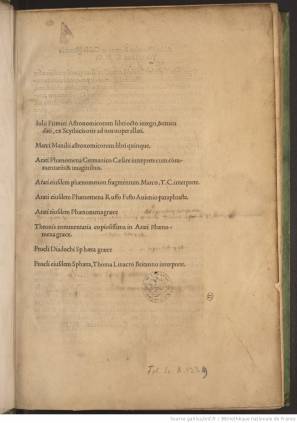 Iulii Firmici Astronomicorum libri octo integri, & emen
dati, ex Scythicis oris ad nos nuper allati.
Marci Manilii astronomicorum libri quinque.
Arati Phænomena Germanico Cæsare interprete cum com-
mentariis & imaginibus.
Arati eiusdem phænomenon fragmentum Marco. T. C. interprete.
Arati eiusdem Phænomena Ruffo Festo Auienio paraphraste.
Arati eiusdem Phænomena græce
Theonis commentaria copiosissima in Arati Phæno-
mena græce.
Procli Diadochi Sphæra græce
Procli eiusdem Sphæra, Thoma Linacro Britanno interprete.
Source gallica.bnf.fr / Bibliothèque nationale de France